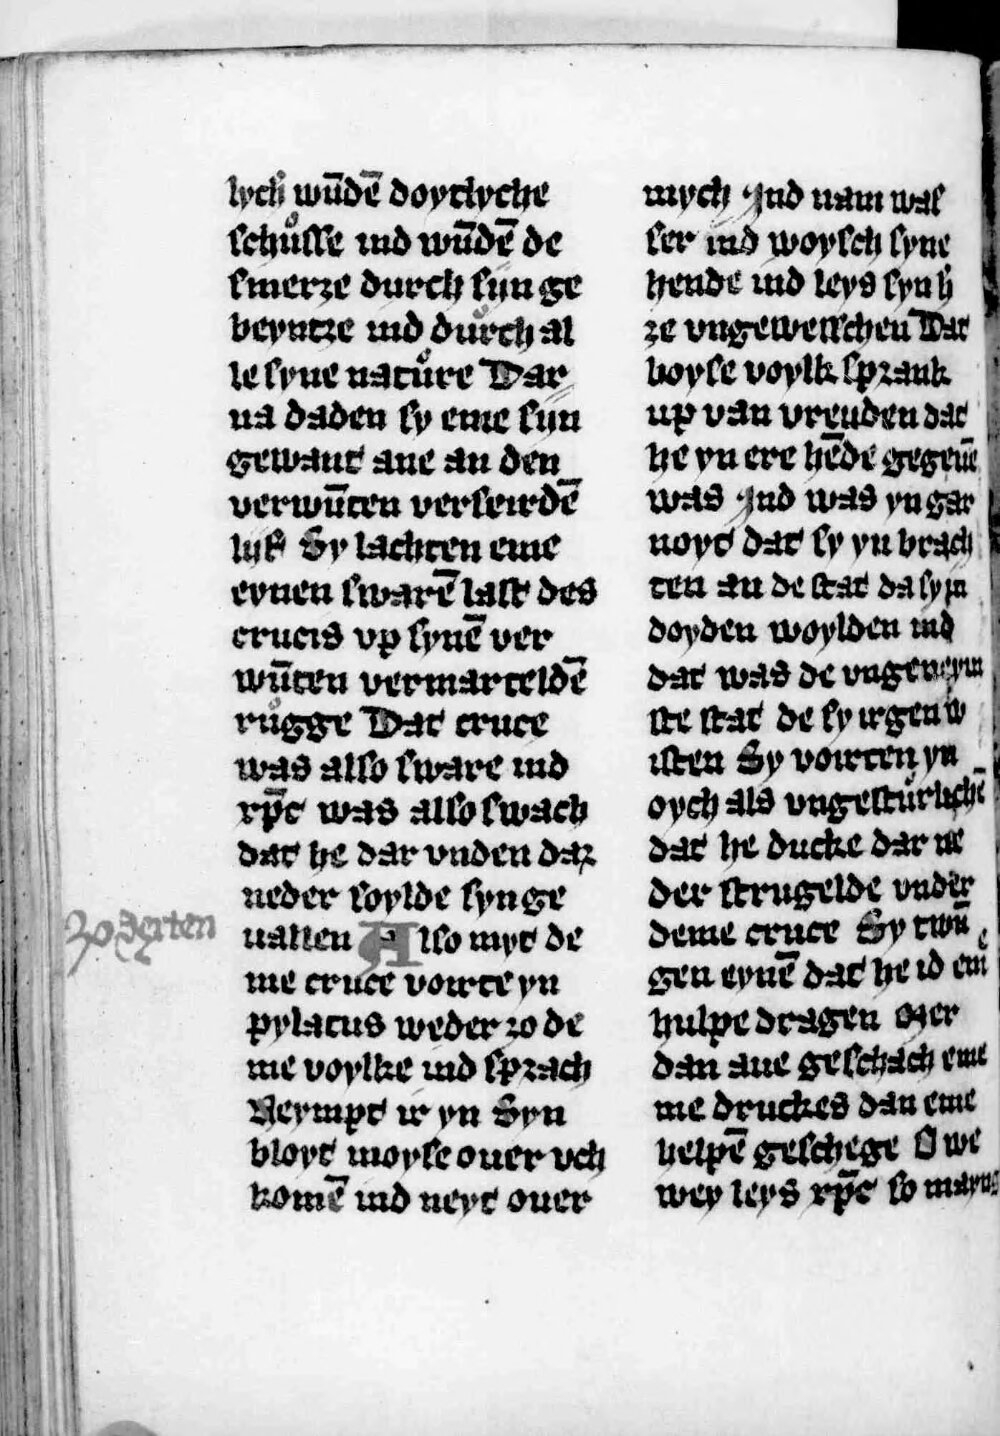 lych wūdē doytlyche
schůsse ind wūdē de
smerze durch sijn ge
beyntze ind důrch al
le syne natůre Dar
na daden sy eme sijn
gewant ane an den
verwūten verseirdē
lijf Sy lachten eme
eynen swarē last des
crucis vp synē ver
wūten vermarteldē
růgge Dat cruce
was also sware ind
xp̄c was also swach
dat he dar vnden dar
neder soylde synge
uallen Also myt de
me cruce voirte yn
pylatus weder zo de
me voylke ind sprach
Neympt ir yn Syn
bloyt moyse ouer vch
komē ind neyt ouer
zo derten
mych Ind nam was
ser ind woysch syne
hende ind leys syn h̄
ze vngewesschen Dat
boyse voylk sprank
up van vreuden dat
he yn ere hēde gegeuē
was Ind was yn gar
noyt dat sy yn brach
ten an de stat da sy yn
doyden woylden ind
dat was de vngeneym
ste stat de sy irgen w
isten Sy voirten yn
oych als vngestůrlichē
dat he ducke dar ne
der strugelde vnder
deme cruce Sy twū
gen eynē dat he id em
hulpe dragen Mer
dan aue geschach eme
me druckes dan eme
helpē geschege O we
wey leys xp̄c so mayng